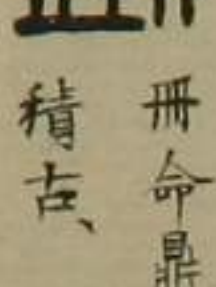 冊命鼎
積古、